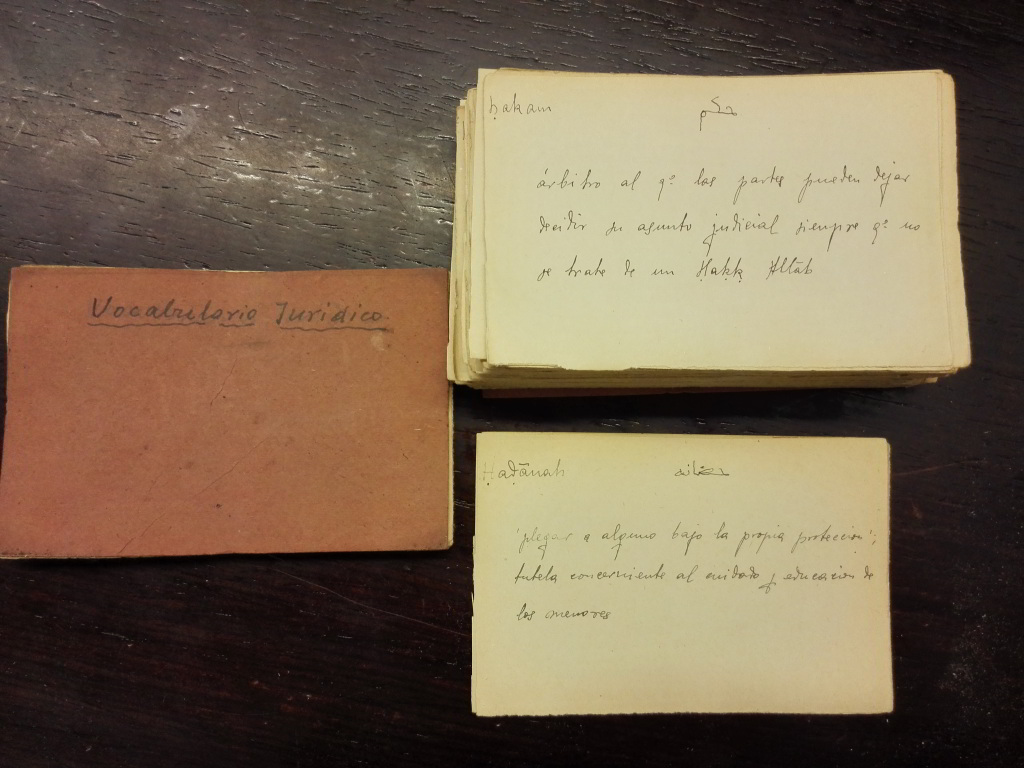 Vocabulario Juridico.
ḥakam حكم
árbitro al qe las partes pueden dejar
decidir su asunto judicial siempre qe no
se trate de un Ḥaḳḳ Allāh
Ḥaḍānah حضانه
'plegar a alguno bajo la propia proteccion';
tutela concerniente al cuidado y educacion de
los menores